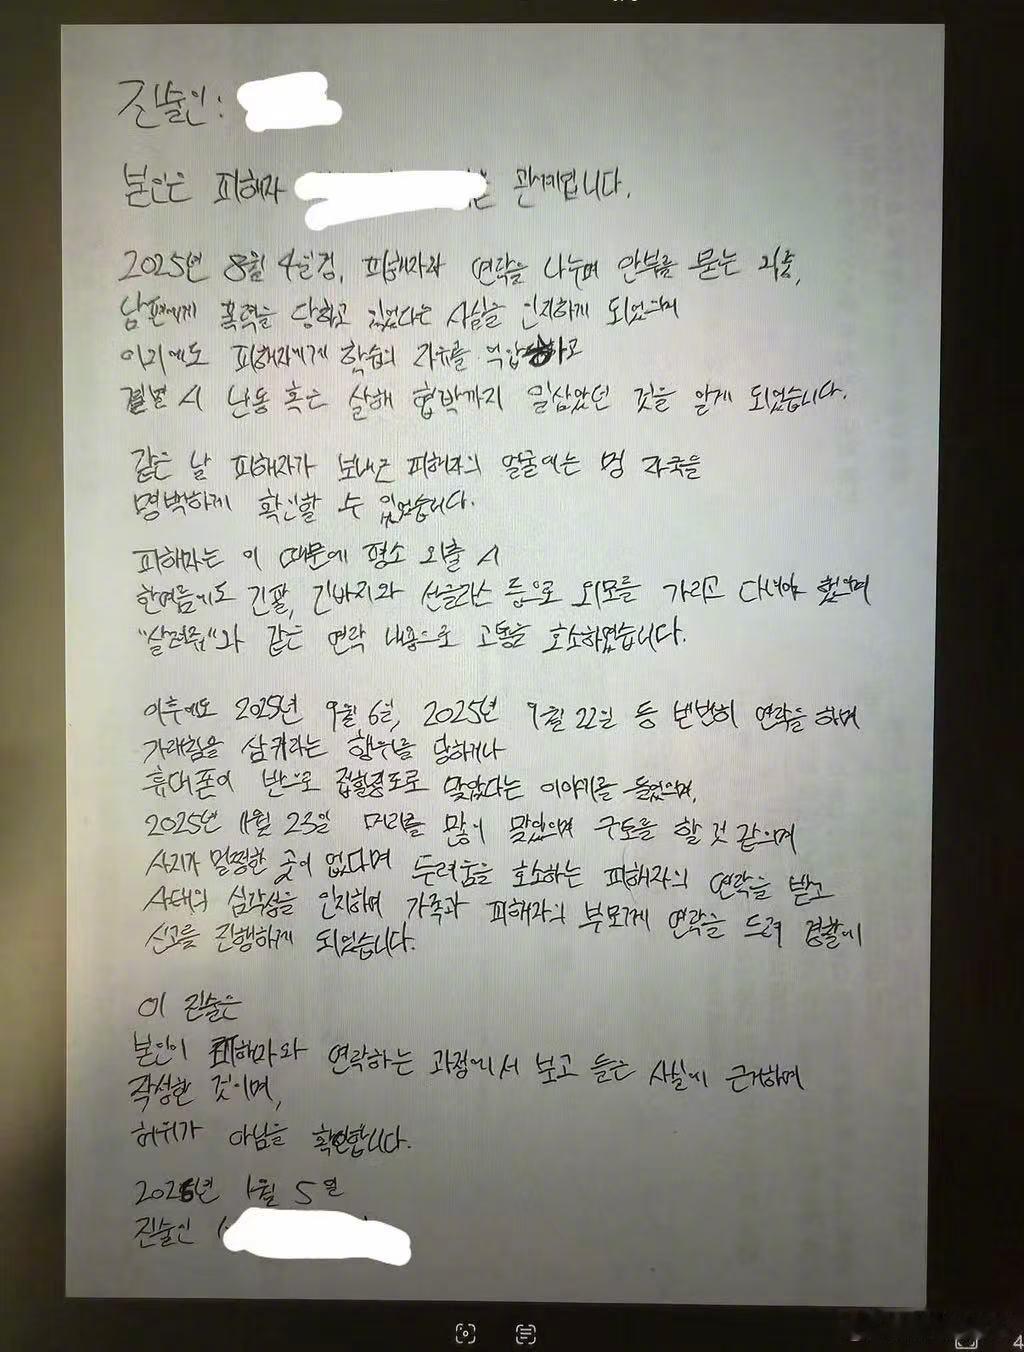 진술인:
본인은 피해자 관계입니다.
2025년 8월 4일경, 피해자와 연락을 나누며 안부를 묻는 와중,
남편에게 폭력을 당하고 있었다는 사실을 인지하게 되었으며
이외에도 피해자에게 학습의 자유를 억압하고
결별 시 난동 혹은 살해 협박까지 일삼았던 것을 알게 되었습니다.
같은 날 피해자가 보내온 피해자의 얼굴에는 멍 자국을
명백하게 확인할 수 있었습니다.
피해자는 이 때문에 평소 외출 시
한여름에도 긴팔, 긴바지와 선글라스 등으로 외모를 가리고 다녀야 했으며
"살려줘"와 같은 연락 내용으로 고통을 호소하였습니다.
이후에도 2025년 9월 6일, 2025년 9월 22일 등 빈번히 연락을 하며
가래침을 삼키라는 행위를 당하거나
휴대폰이 반으로 접힐정도로 맞았다는 이야기를 들었으며,
2025년 11월 23일 머리를 많이 맞았으며 구토를 할 것 같으며
사지가 멀쩡한 곳이 없다며 두려움을 호소하는 피해자의 연락을 받고
사태의 심각성을 인지하며 가족과 피해자의 부모께 연락을 드려 경찰에
신고를 진행하게 되었습니다.
이 진술은
본인이 피해자와 연락하는 과정에서 보고 들은 사실에 근거하여
작성한 것이며,
허위가 아님을 확인합니다.
2026년 1월 5일
진술인 (
4